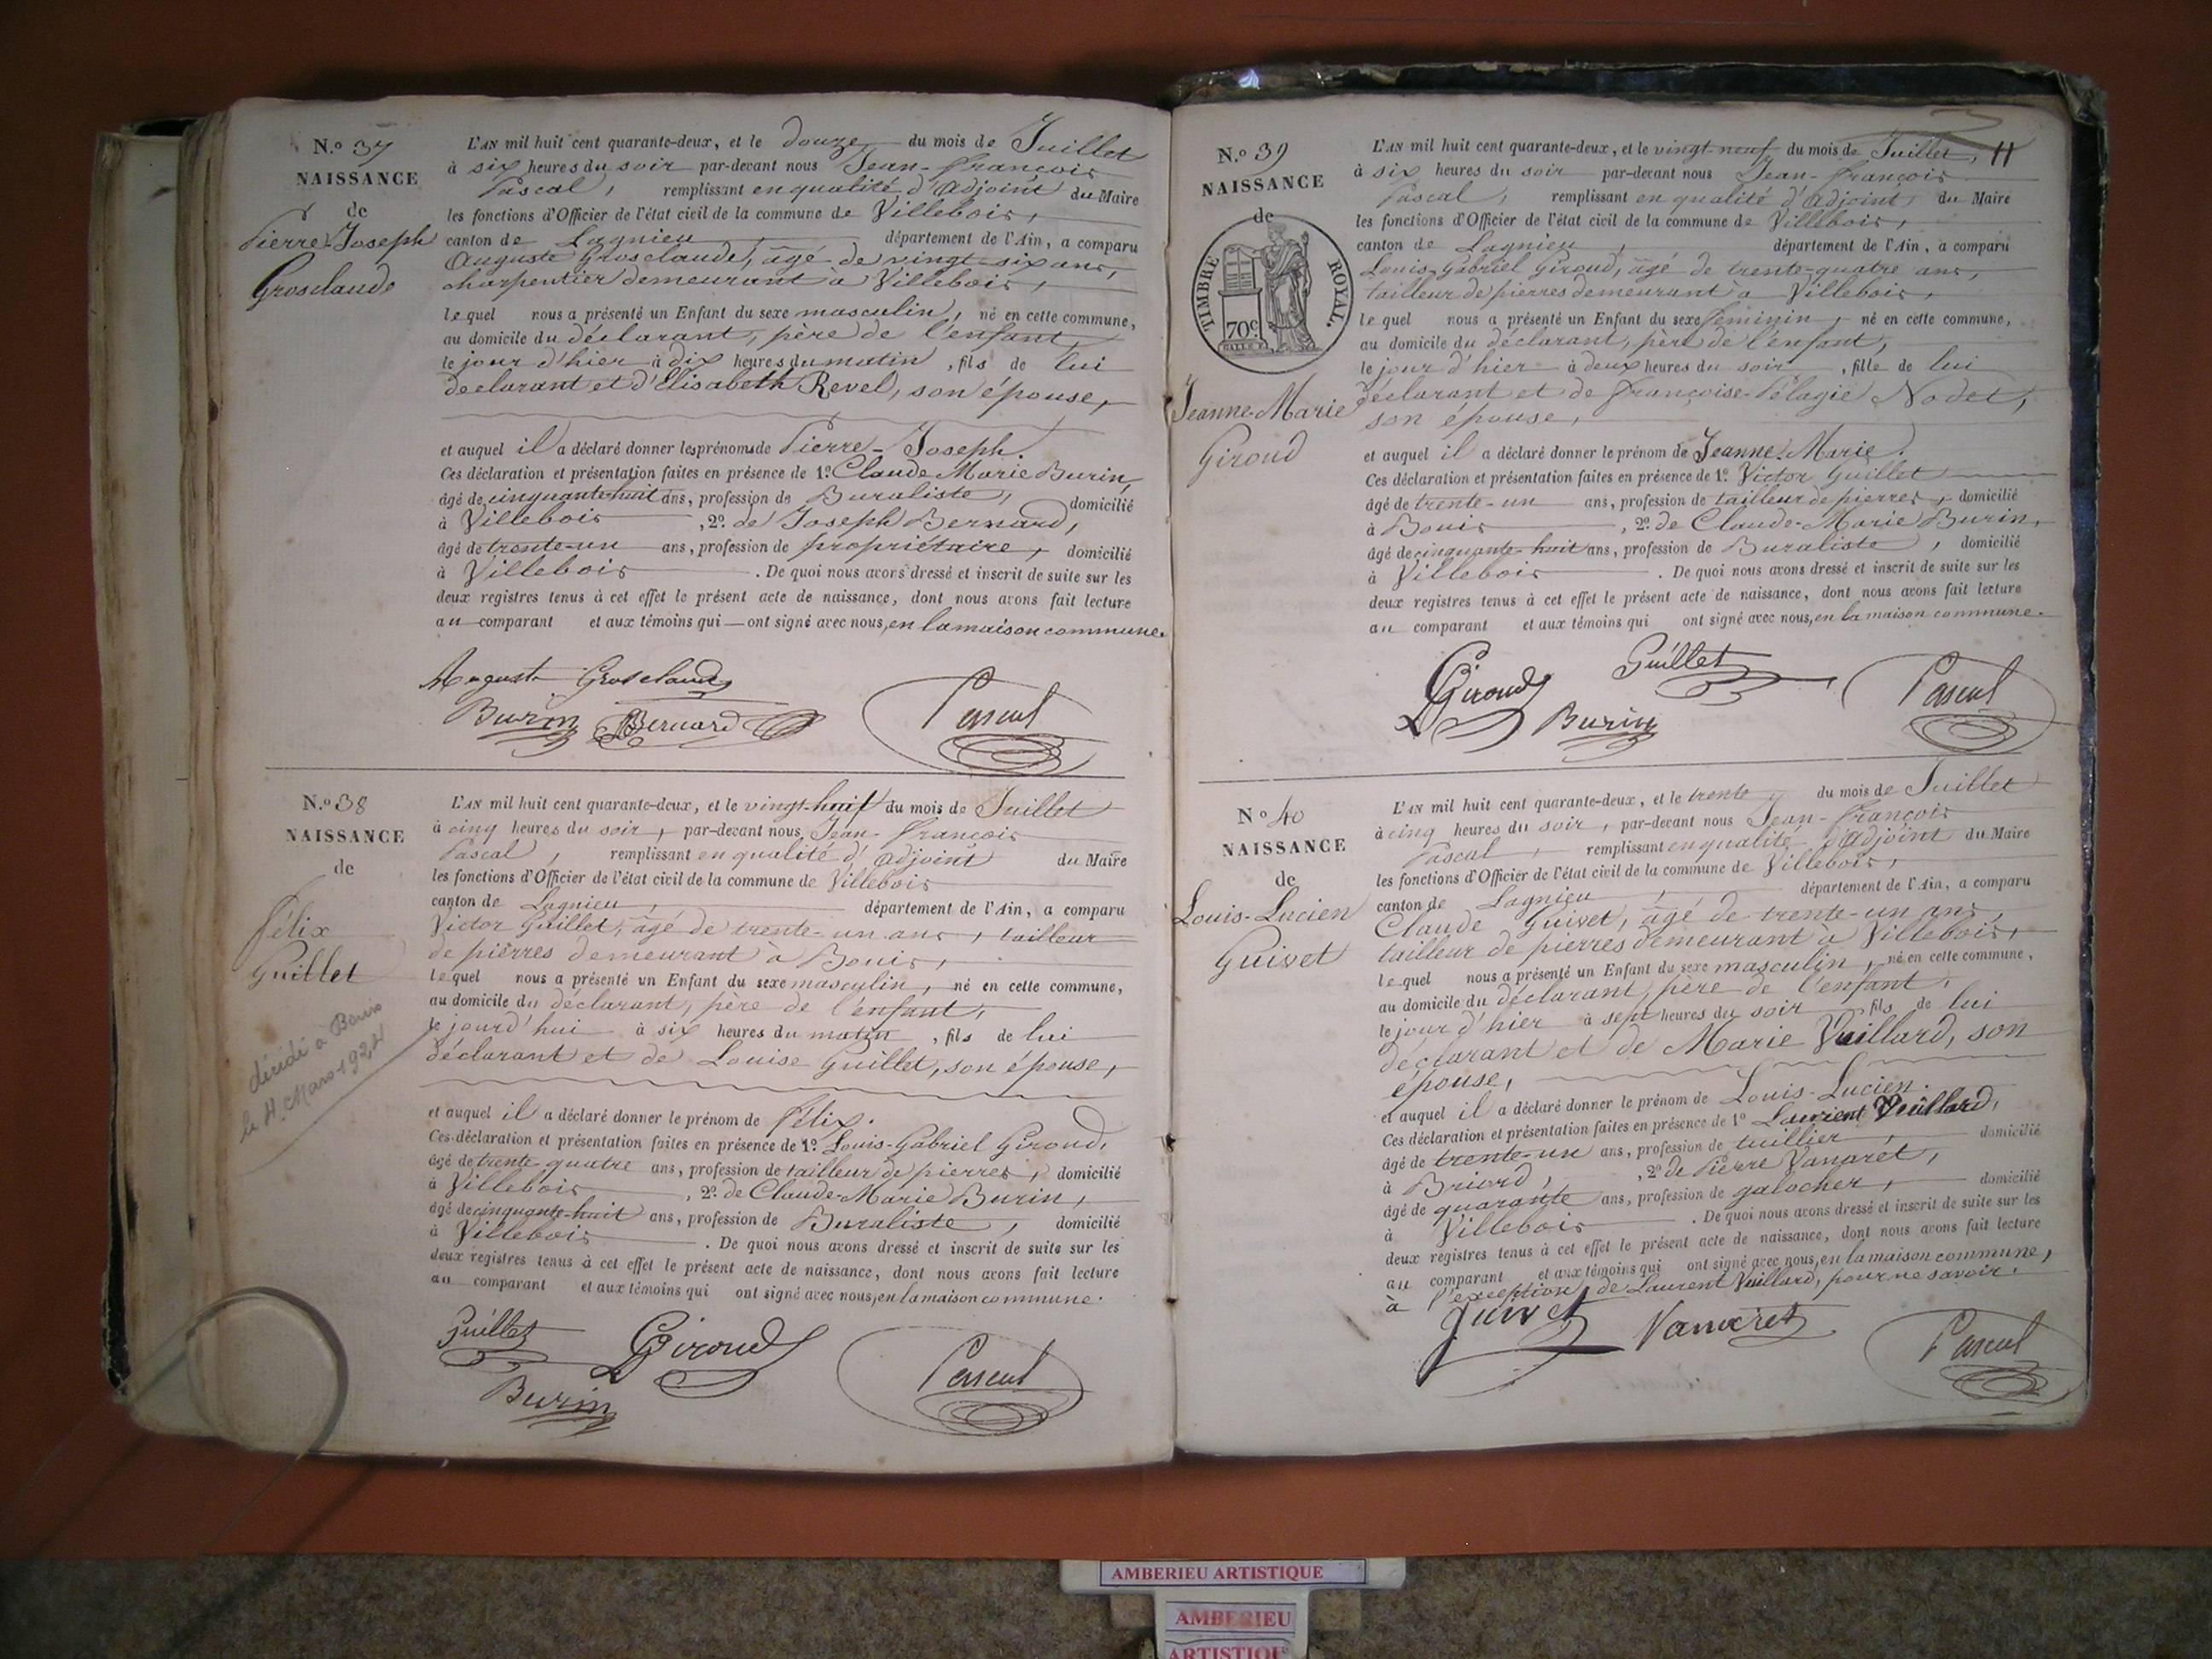 N.º 37
NAISSANCE
de
Pierre-Joseph
Grosclaude
L'AN mil huit cent quarante-deux, et le douze du mois de Juillet
à six heures du soir par-devant nous Jean-François
Pascal, remplissant en qualité d'Adjoint du Maire
les fonctions d'Officier de l'état civil de la commune de Villebois,
canton de Lagnieu, département de l'Ain, a comparu
Auguste Grosclaude, âgé de vingt-six ans,
charpentier demeurant à Villebois,
lequel nous a présenté un Enfant du sexe masculin, né en cette commune,
au domicile du déclarant, père de l'enfant,
le jour d'hier à dix heures du matin, fils de lui
declarant et d'Elisabeth Revel, son épouse,
et auquel il a déclaré donner les prénoms de Pierre-Joseph.
Ces déclaration et présentation faites en présence de 1º. Claude Marie Burin,
âgé de cinquante-huit ans, profession de Buraliste, domicilié
à Villebois, 2º. de Joseph Bernard,
âgé de trente-un ans, profession de propriétaire, domicilié
à Villebois. De quoi nous avons dressé et inscrit de suite sur les
deux registres tenus à cet effet le présent acte de naissance, dont nous avons fait lecture
au comparant et aux témoins qui ont signé avec nous, en la maison commune.
August Grosclaude
Burin Bernard Pascal
N.º 38
NAISSANCE
de
Félix
Guillet
décédé à Bouis
le 4. Mars 1924
L'AN mil huit cent quarante-deux, et le vingt-huit du mois de Juillet
à cinq heures du soir, par-devant nous Jean-François
Pascal, remplissant en qualité d'Adjoint du Maire
les fonctions d'Officier de l'état civil de la commune de Villebois
canton de Lagnieu, département de l'Ain, a comparu
Victor Guillet, âgé de trente-un ans, tailleur
de pierres demeurant à Bouis,
lequel nous a présenté un Enfant du sexe masculin, né en cette commune,
au domicile du déclarant, père de l'enfant,
le jourd'hui à six heures du matin, fils de lui
déclarant et de Louise Guillet, son épouse,
et auquel il a déclaré donner le prénom de Félix.
Ces déclaration et présentation faites en présence de 1º. Louis-Gabriel Giroud,
âgé de trente-quatre ans, profession de tailleur de pierres, domicilié
à Villebois, 2º. de Claude-Marie Burin,
âgé de cinquante-huit ans, profession de Buraliste, domicilié
à Villebois. De quoi nous avons dressé et inscrit de suite sur les
deux registres tenus à cet effet le présent acte de naissance, dont nous avons fait lecture
au comparant et aux témoins qui ont signé avec nous, en la maison commune.
Guillet Giroud
Burin Pascal
11
N.º 39
NAISSANCE
de
TIMBRE ROYAL.
70c
Jeanne-Marie
Giroud
L'AN mil huit cent quarante-deux, et le vingt-neuf du mois de Juillet,
à six heures du soir par-devant nous Jean-François
Pascal, remplissant en qualité d'Adjoint du Maire
les fonctions d'Officier de l'état civil de la commune de Villebois,
canton de Lagnieu, département de l'Ain, a comparu
Louis-Gabriel Giroud, âgé de trente-quatre ans,
tailleur de pierres demeurant à Villebois,
lequel nous a présenté un Enfant du sexe féminin, né en cette commune,
au domicile du déclarant, père de l'enfant,
le jour d'hier à deux heures du soir, fille de lui
déclarant et de Françoise-Pélagie Nodet,
son épouse,
et auquel il a déclaré donner le prénom de Jeanne-Marie.
Ces déclaration et présentation faites en présence de 1º. Victor Guillet
âgé de trente-un ans, profession de tailleur de pierres, domicilié
à Bouis, 2º. de Claude-Marie Burin,
âgé de cinquante-huit ans, profession de Buraliste, domicilié
à Villebois. De quoi nous avons dressé et inscrit de suite sur les
deux registres tenus à cet effet le présent acte de naissance, dont nous avons fait lecture
au comparant et aux témoins qui ont signé avec nous, en la maison commune.
Giroud Guillet
Burin Pascal
Nº 40
NAISSANCE
de
Louis-Lucien
Guivet
L'AN mil huit cent quarante-deux, et le trente du mois de Juillet
à cinq heures du soir, par-devant nous Jean-François
Pascal, remplissant en qualité d'Adjoint du Maire
les fonctions d'Officier de l'état civil de la commune de Villebois,
canton de Lagnieu, département de l'Ain, a comparu
Claude Guivet, âgé de trente-un ans,
tailleur de pierres demeurant à Villebois,
lequel nous a présenté un Enfant du sexe masculin, né en cette commune,
au domicile du déclarant, père de l'enfant,
le jour d'hier à sept heures du soir fils de lui
déclarant et de Marie Vuillard, son
épouse,
et auquel il a déclaré donner le prénom de Louis-Lucien.
Ces déclaration et présentation faites en présence de 1º Laurent Vuillard,
âgé de trente-un ans, profession de tuillier, domicilié
à Briord, 2º de Pierre Vanaret,
âgé de quarante ans, profession de galocher, domicilié
à Villebois. De quoi nous avons dressé et inscrit de suite sur les
deux registres tenus à cet effet le présent acte de naissance, dont nous avons fait lecture
au comparant et aux témoins qui ont signé avec nous, en la maison commune,
à l'exception de Laurent Vuillard, pour ne savoir.
Guivet Vanaret
Pascal
AMBERIEU ARTISTIQUE
AMBERIEU
ARTISTIQUE